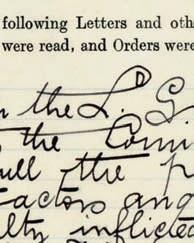 following Letters and oth
were read, and Orders were
the L. G.
the Com
ull the p
actors ang
lty inflicted